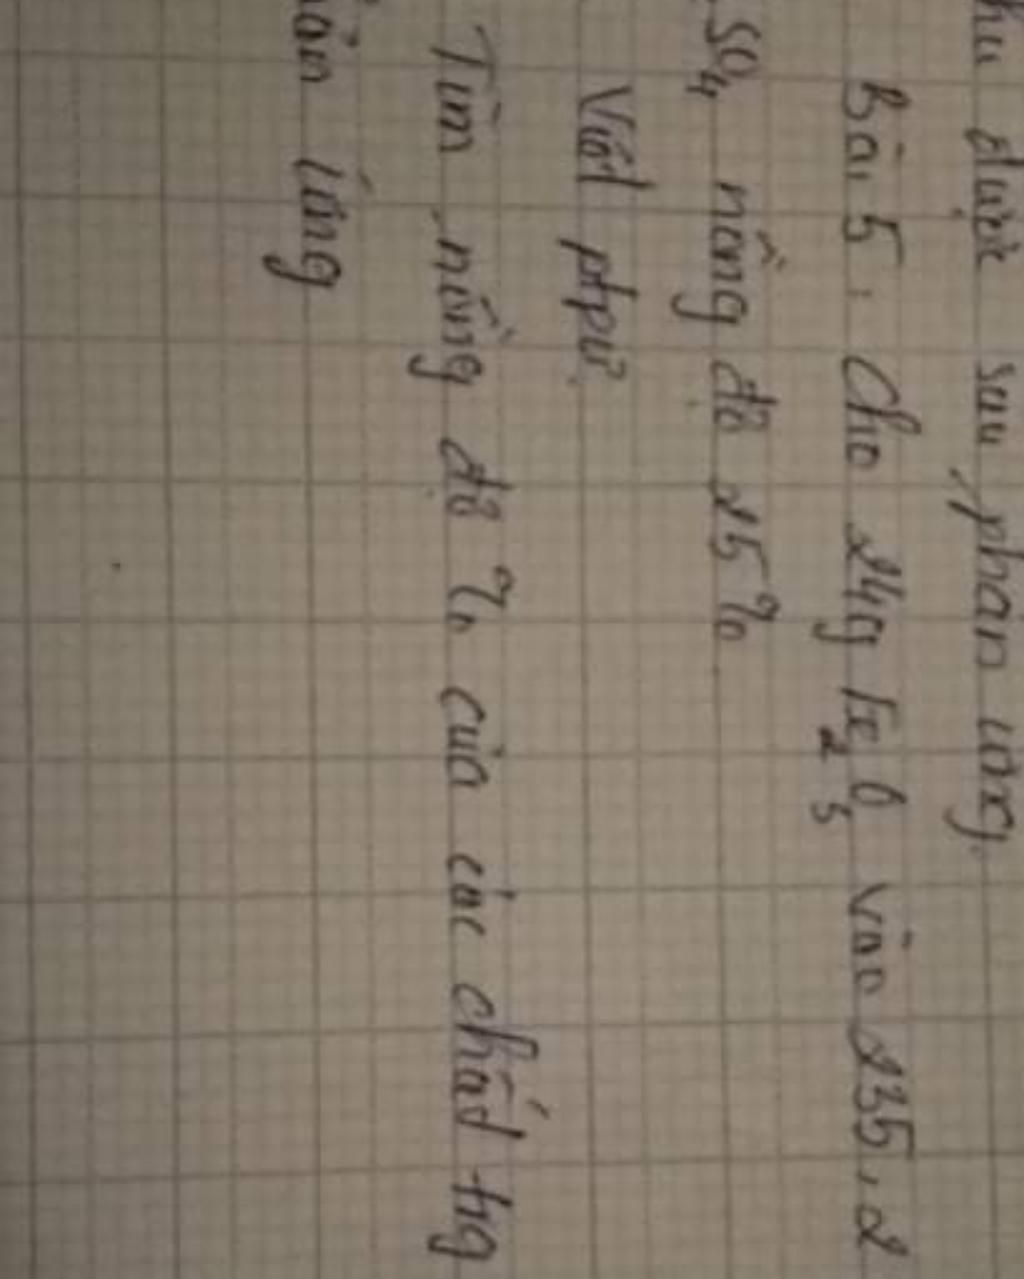 thu được sau phản ứng.
Bài 5: Cho 24g Fe2O3 vào 235,2
SO4 nồng độ 25%
Viết ptpứ
Tìm nồng độ % của các chất trg
ứng